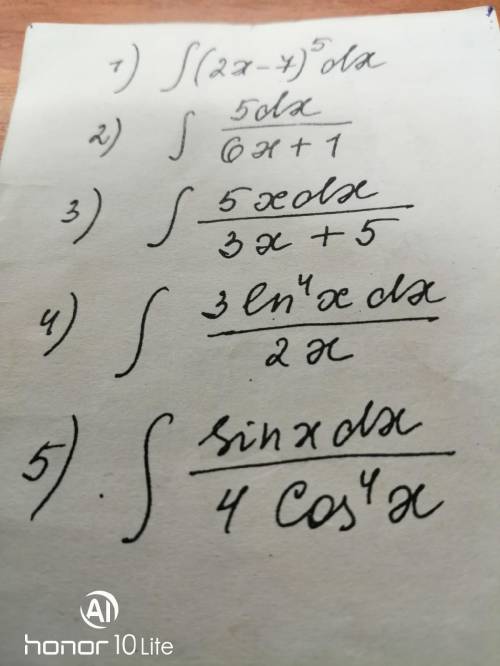 1) ∫(2x-7)^5 dx
2) ∫ 5dx / 6x+1
3) ∫ 5xdx / 3x+5
4) ∫ 3ln^4x dx / 2x
5) . ∫ sinxdx / 4 Cos^4x
AI
honor 10 Lite